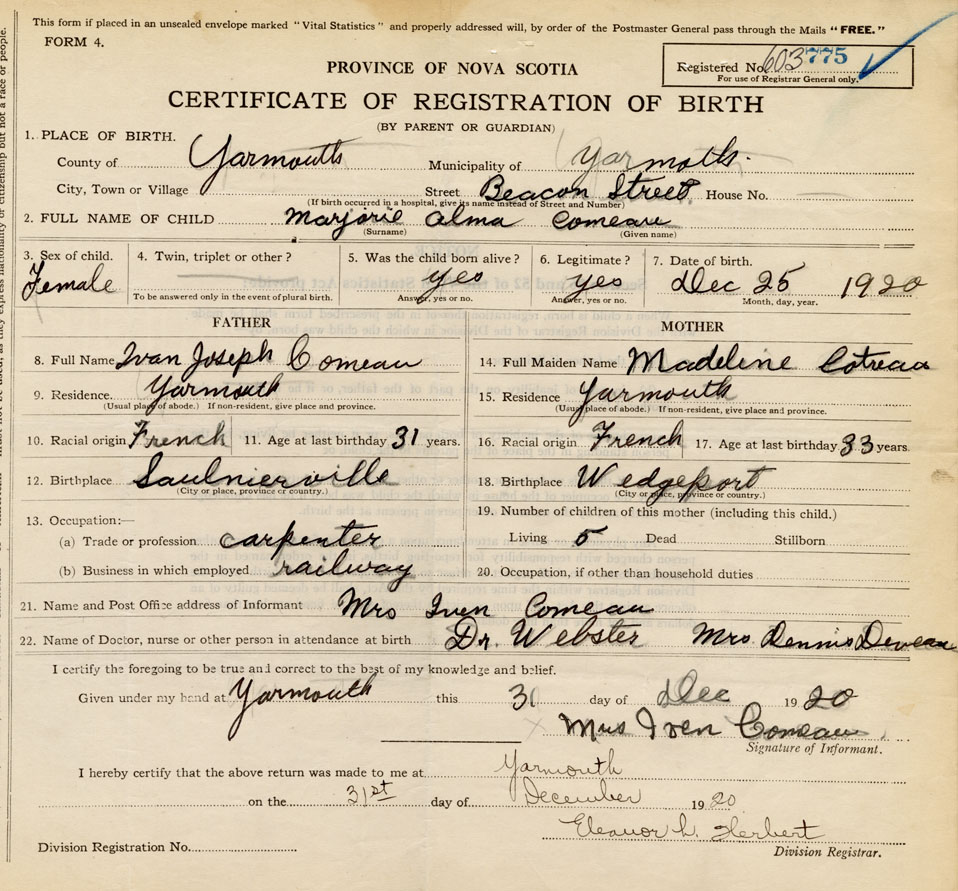 This form if placed in an unsealed envelope marked "Vital Statistics" and properly addressed will, by order of the Postmaster General pass through the Mails "FREE."
FORM 4.
Registered No. 603775
For use of Registrar General only.
PROVINCE OF NOVA SCOTIA
CERTIFICATE OF REGISTRATION OF BIRTH
(BY PARENT OR GUARDIAN)
1. PLACE OF BIRTH.
County of Yarmouth Municipality of Yarmoth.
City, Town or Village Street Beacon Street House No.
(If birth occurred in a hospital, give its name instead of Street and Number)
2. FULL NAME OF CHILD Marjorie Alma Comeau
(Surname) (Given name)
3. Sex of child. 4. Twin, triplet or other? 5. Was the child born alive? 6. Legitimate? 7. Date of birth.
Female yes yes Dec 25 1920
To be answered only in the event of plural birth. Answer, yes or no. Answer, yes or no. Month, day, year.
FATHER MOTHER
8. Full Name Ivan Joseph Comeau 14. Full Maiden Name Madeline Cotreau
9. Residence. Yarmouth 15. Residence Yarmouth
(Usual place of abode.) If non-resident, give place and province. (Usual place of abode.) If non-resident, give place and province.
10. Racial origin French 11. Age at last birthday 31 years. 16. Racial origin French 17. Age at last birthday 33 years.
12. Birthplace Saulnierville 18. Birthplace Wedgeport
(City or place, province or country.) (City or place, province or country.)
13. Occupation:— 19. Number of children of this mother (including this child.)
(a) Trade or profession carpenter Living 5 Dead Stillborn
(b) Business in which employed railway 20. Occupation, if other than household duties
21. Name and Post Office address of Informant Mrs Iven Comeau
22. Name of Doctor, nurse or other person in attendance at birth Dr. Webster Mrs. Dennis Deveau
I certify the foregoing to be true and correct to the best of my knowledge and belief.
Given under my hand at Yarmouth this 31 day of Dec 1920
Mrs Iven Comeau
Signature of Informant.
I hereby certify that the above return was made to me at Yarmouth
on the 31st day of December 1920
Eleanor L. Herbert
Division Registration No. Division Registrar.